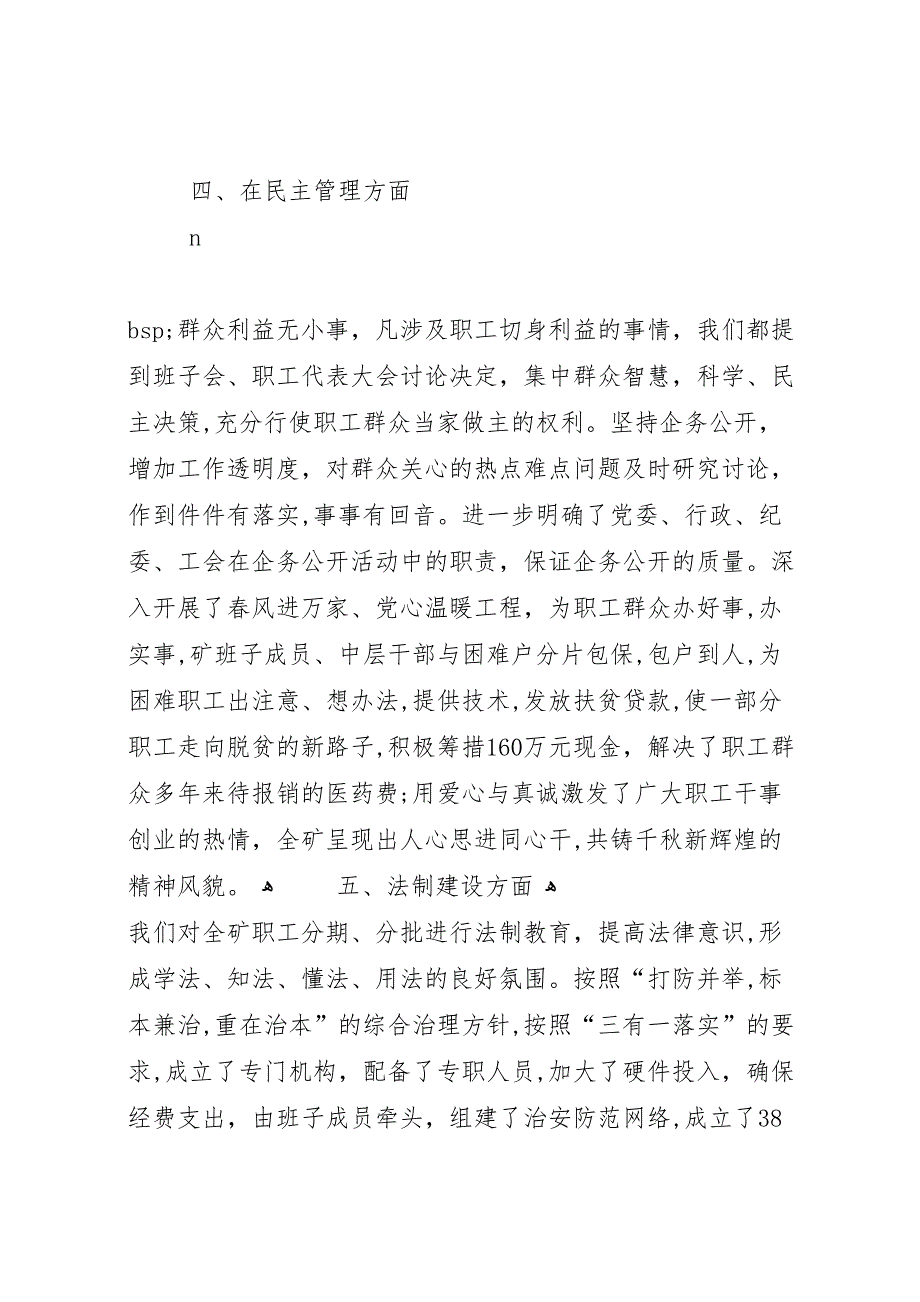 四、在民主管理方面
n
bsp;群众利益无小事，凡涉及职工切身利益的事情，我们都提
到班子会、职工代表大会讨论决定，集中群众智慧，科学、民
主决策,充分行使职工群众当家做主的权利。坚持企务公开，
增加工作透明度，对群众关心的热点难点问题及时研究讨论，
作到件件有落实,事事有回音。进一步明确了党委、行政、纪
委、工会在企务公开活动中的职责，保证企务公开的质量。深
入开展了春风进万家、党心温暖工程，为职工群众办好事,办
实事,矿班子成员、中层干部与困难户分片包保,包户到人,为
困难职工出注意、想办法,提供技术,发放扶贫贷款,使一部分
职工走向脱贫的新路子,积极筹措160万元现金，解决了职工群
众多年来待报销的医药费;用爱心与真诚激发了广大职工干事
创业的热情，全矿呈现出人心思进同心干,共铸千秋新辉煌的
精神风貌。 ﻫ 五、法制建设方面 ﻫ
我们对全矿职工分期、分批进行法制教育，提高法律意识,形
成学法、知法、懂法、用法的良好氛围。按照“打防并举,标
本兼治,重在治本”的综合治理方针,按照“三有一落实”的要
求,成立了专门机构，配备了专职人员,加大了硬件投入，确保
经费支出，由班子成员牵头，组建了治安防范网络,成立了38